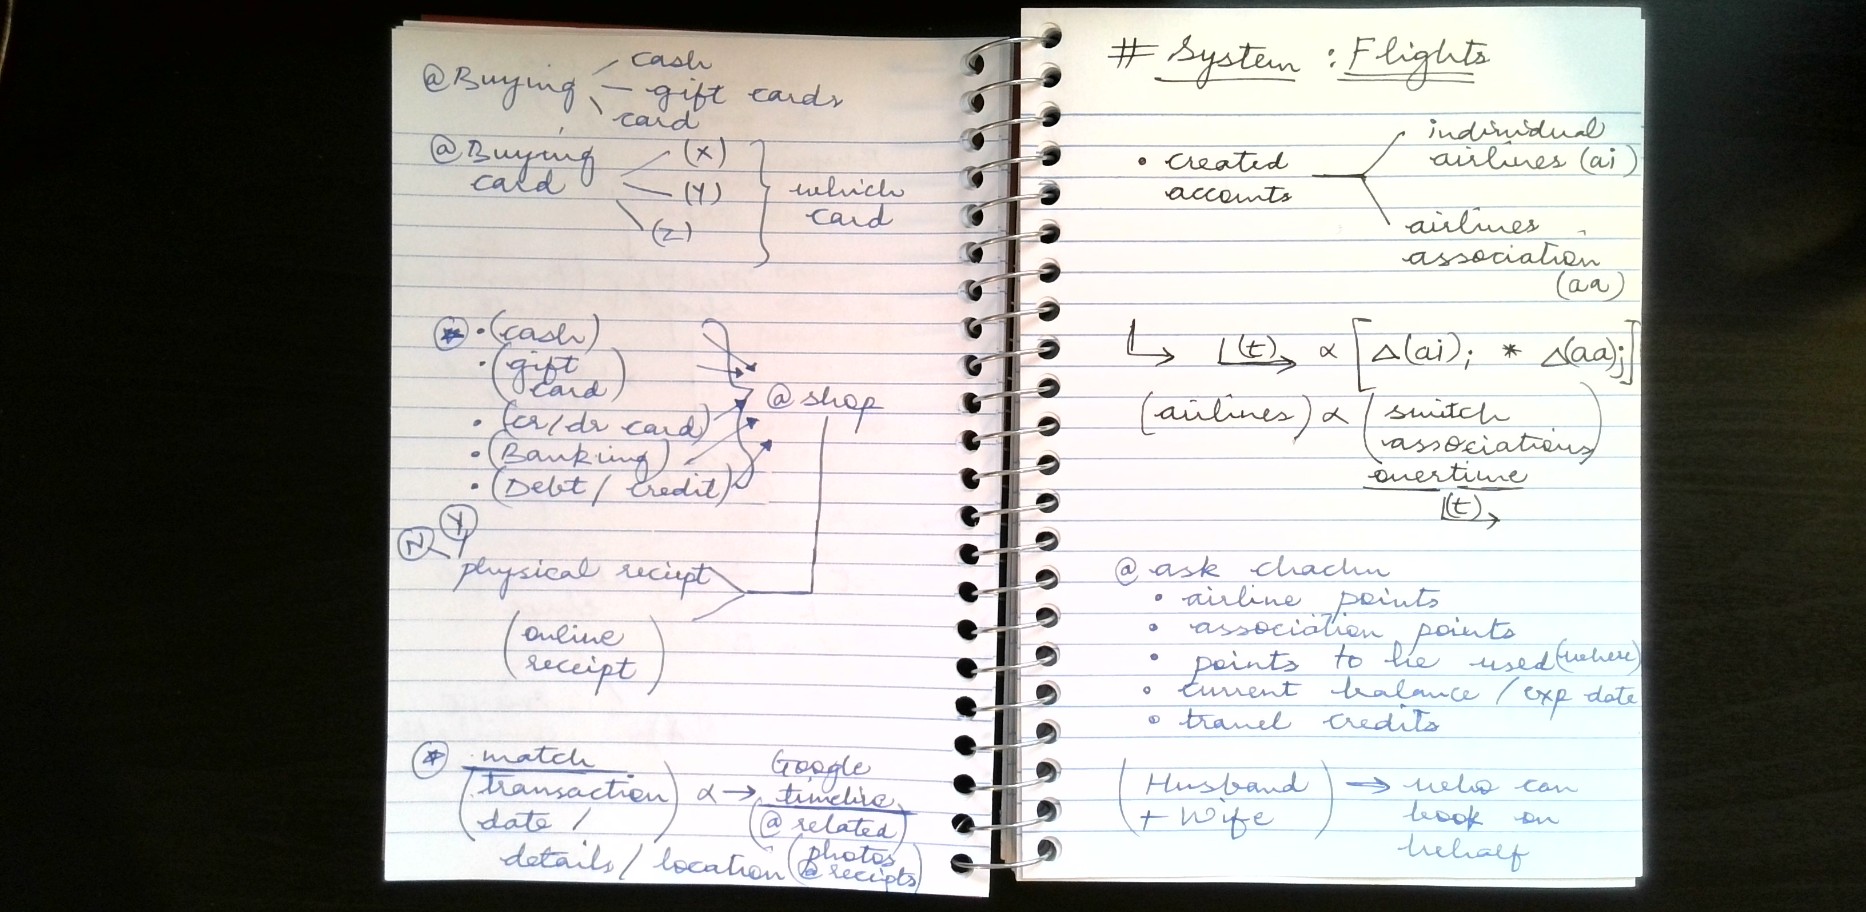 @ Buying
cash
gift cards
card
@ Buying
card
(X)
(Y)
(Z)
which
card
* • (cash)
• (gift
card)
• (cr/dr card)
• (Banking)
• (Debt / credit)
@ shop
Y
N
physical reciept
(online
receipt)
* match
(transaction
date /
details / location
∝ →
Google
timeline
(@ related)
(photos
@ receipts)
# System : Flights
• created
accounts
individual
airlines (ai)
airlines
association
(aa)
(t) ∝ [Δ(ai)i * Δ(aa)j]
(airlines) ∝ (switch
associations)
overtime
(t)
@ ask chachu
• airline points
• association points
• points to be used (where)
• current balance / exp date
• travel credits
(Husband
+ Wife)
→ who can
book on
behalf